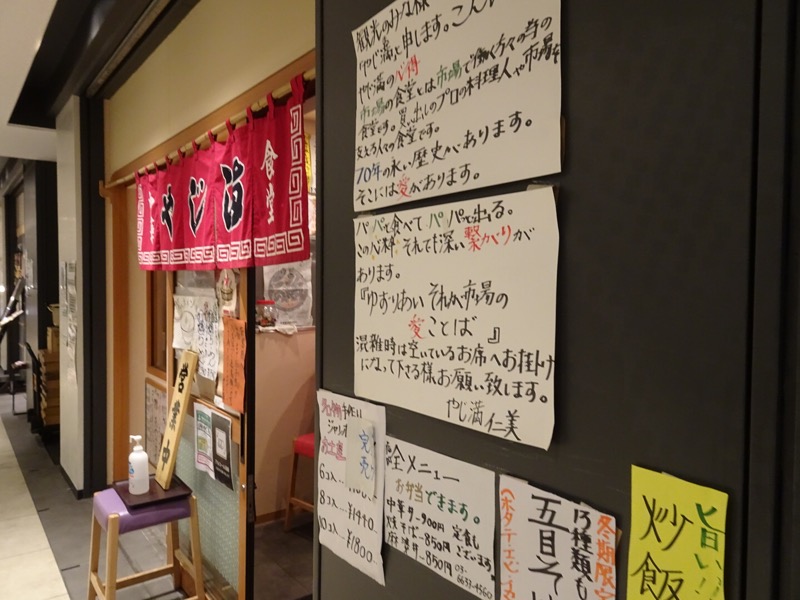 やじ満
食堂
営業中
観光のみな様
「やじ満」と申します。
やじ満の心得
市場の食堂とは市場で働く方々の為の
食堂です。買い出しのプロの料理人や市場を
支える人々の食堂です。
70年の永い歴史があります。
そこには愛があります。
パッパと食べてパッパと出る。
それでも深い繋がりが
あります。
『ゆずりあい それが市場の
愛ことば』
混雑時は空いているお席へお掛け
になって下さる様お願い致します。
やじ満 仁美
ジャンボ
お土産
完売
6コ入
8コ入…¥1440
10コ入…¥1800
全メニュー
お弁当できます。
中華丼-900円 定食も
焼そば-850円 ございます。
麻婆丼-850円
03-
6633-4560
冬期限定
13種類も
五目そ
旨い!!
炒飯